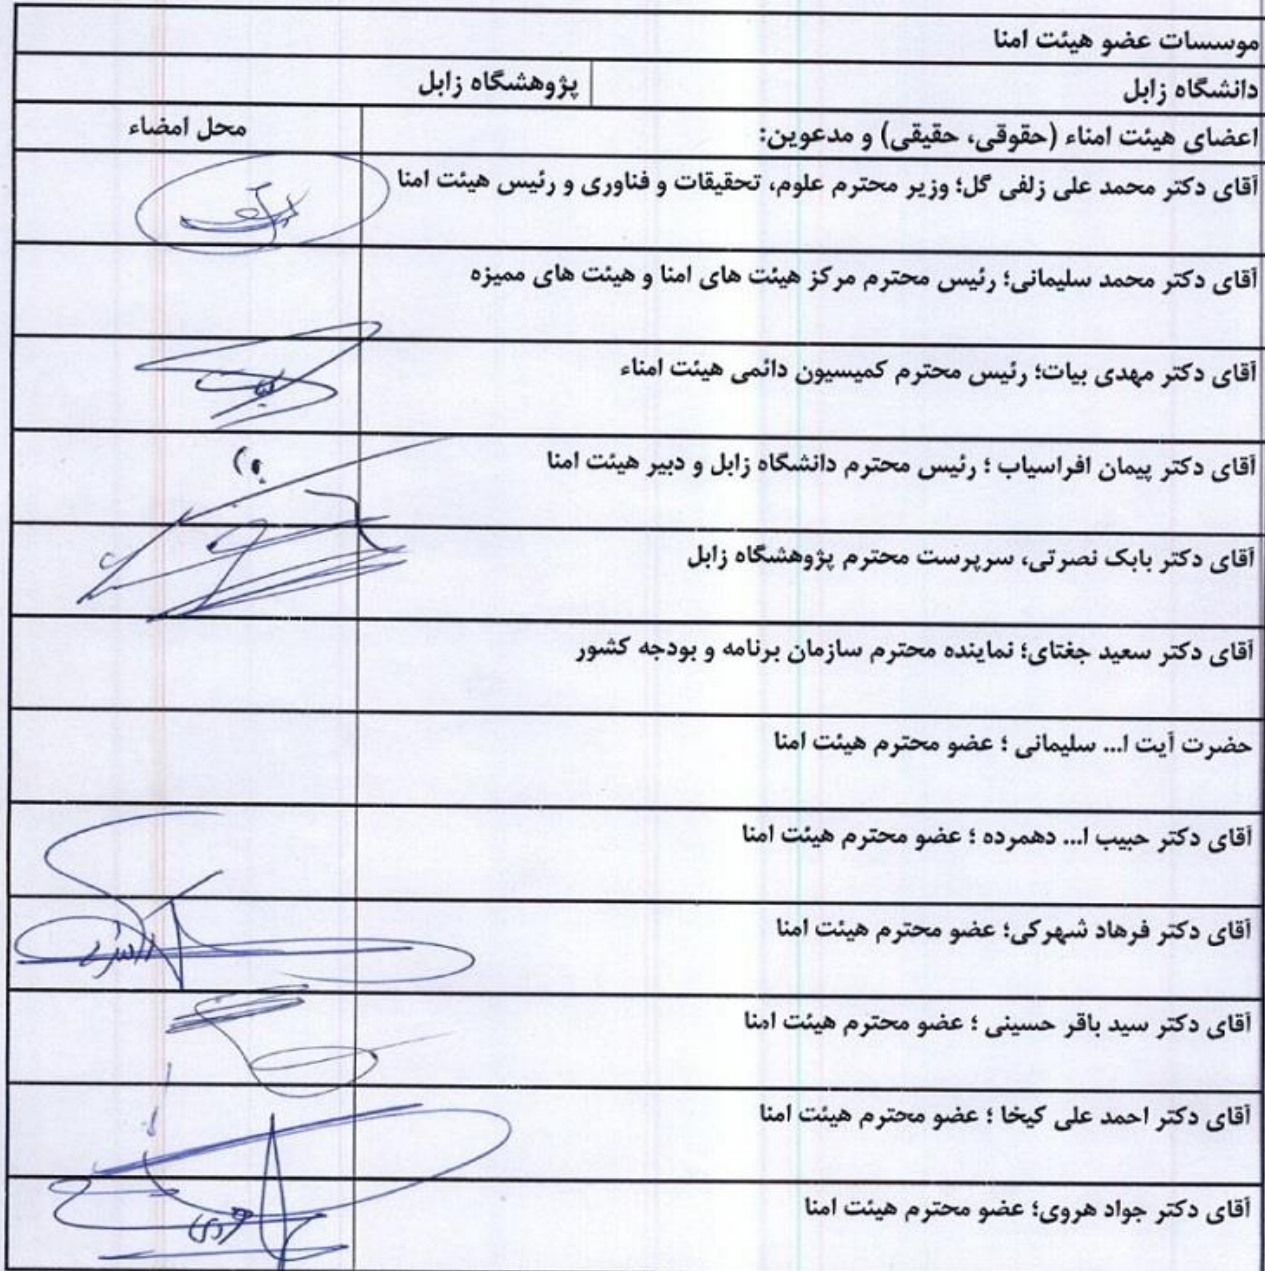 موسسات عضو هیئت امنا
دانشگاه زابل پژوهشگاه زابل
اعضای هیئت امناء (حقوقی، حقیقی) و مدعوین: محل امضاء
آقای دکتر محمد علی زلفی گل؛ وزیر محترم علوم، تحقیقات و فناوری و رئیس هیئت امنا
آقای دکتر محمد سلیمانی؛ رئیس محترم مرکز هیئت های امنا و هیئت های ممیزه
آقای دکتر مهدی بیات؛ رئیس محترم کمیسیون دائمی هیئت امناء
آقای دکتر پیمان افراسیاب ؛ رئیس محترم دانشگاه زابل و دبیر هیئت امنا
آقای دکتر بابک نصرتی، سرپرست محترم پژوهشگاه زابل
آقای دکتر سعید جغتای؛ نماینده محترم سازمان برنامه و بودجه کشور
حضرت آیت ا... سلیمانی ؛ عضو محترم هیئت امنا
آقای دکتر حبیب ا... دهمرده ؛ عضو محترم هیئت امنا
آقای دکتر فرهاد شهرکی؛ عضو محترم هیئت امنا
آقای دکتر سید باقر حسینی ؛ عضو محترم هیئت امنا
آقای دکتر احمد علی کیخا ؛ عضو محترم هیئت امنا
آقای دکتر جواد هروی؛ عضو محترم هیئت امنا